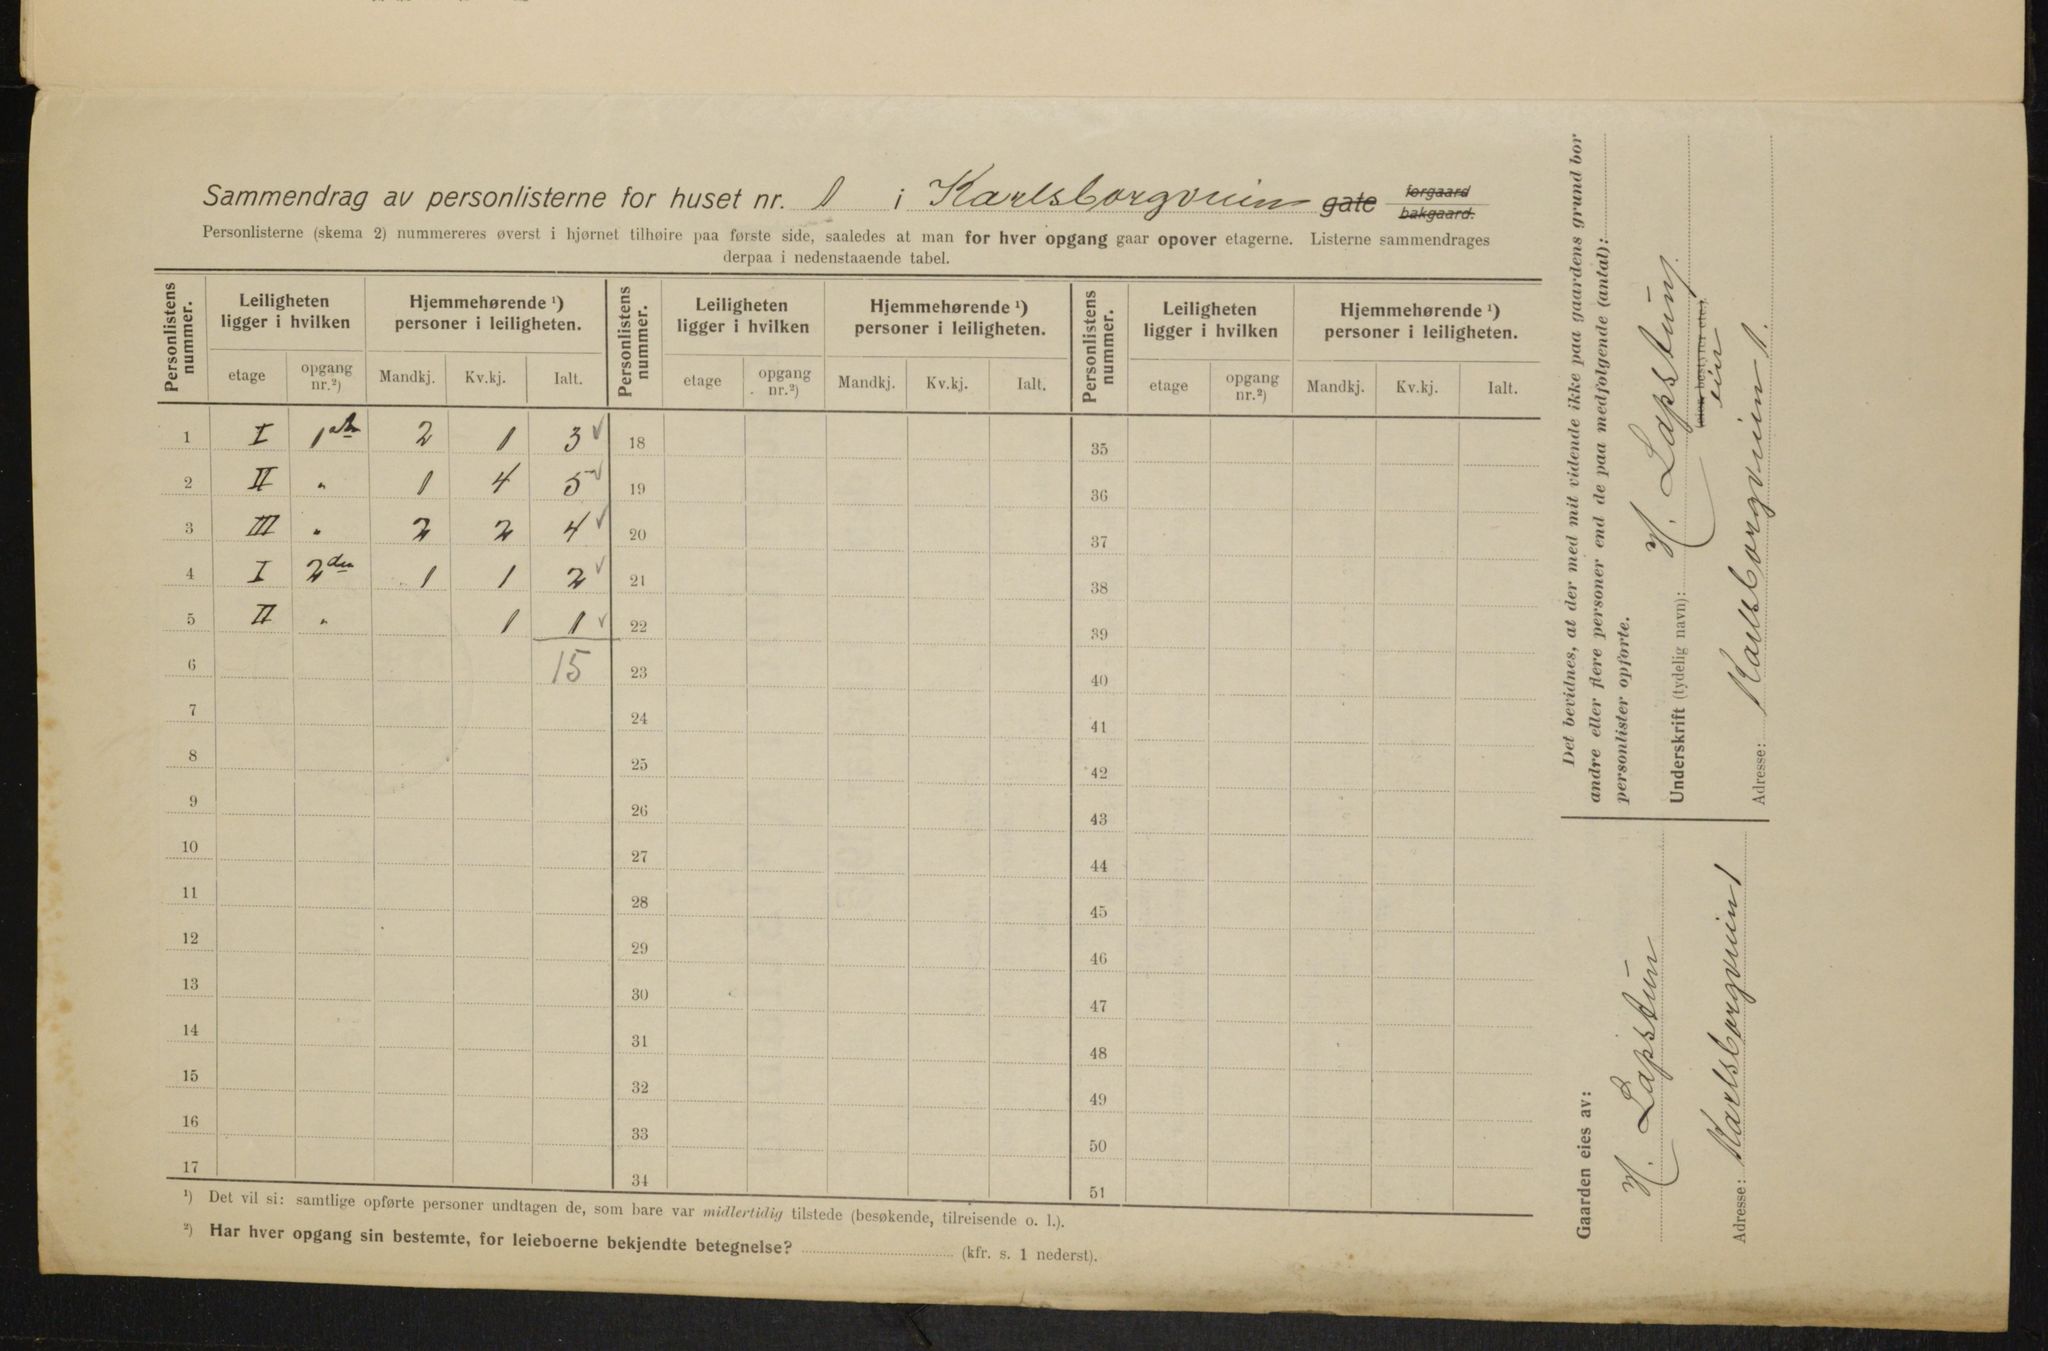 Sammendrag av personlisterne for huset nr. 1 i Karlsborgveien gate forgaard bakgaard.
Personlisterne (skema 2) nummereres øverst i hjørnet tilhøire paa første side, saaledes at man for hver opgang gaar opover etagerne. Listerne sammendrages
derpaa i nedenstaaende tabel.
Personlistens nummer. Leiligheten ligger i hvilken Hjemmehørende ¹) personer i leiligheten. Personlistens nummer. Leiligheten ligger i hvilken Hjemmehørende ¹) personer i leiligheten. Personlistens nummer. Leiligheten ligger i hvilken Hjemmehørende ¹) personer i leiligheten.
etage opgang nr.²) Mandkj. Kv.kj. Ialt. etage opgang nr.²) Mandkj. Kv.kj. Ialt. etage opgang nr.²) Mandkj. Kv.kj. Ialt.
1 I 1ste 2 1 3 ✓ 18 35
2 II " 1 4 5 ✓ 19 36
3 III " 2 2 4 ✓ 20 37
4 I 2den 1 1 2 ✓ 21 38
5 II " 1 1 ✓ 22 39
6 15 23 40
7 24 41
8 25 42
9 26 43
10 27 44
11 28 45
12 29 46
13 30 47
14 31 48
15 32 49
16 33 50
17 34 51
¹) Det vil si: samtlige opførte personer undtagen de, som bare var midlertidig tilstede (besøkende, tilreisende o. l.).
²) Har hver opgang sin bestemte, for leieboerne bekjendte betegnelse? (kfr. s. 1 nederst).
Det bevidnes, at der med mit vidende ikke paa gaardens grund bor
andre eller flere personer end de paa medfølgende (antal):
personlister opførte.
Underskrift (tydelig navn): H. Lapstun
(eier, bestyrer etc.)
eier
Adresse: Karlsborgveien 1.
Gaarden eies av:
H. Lapstun
Adresse: Karlsborgveien 1